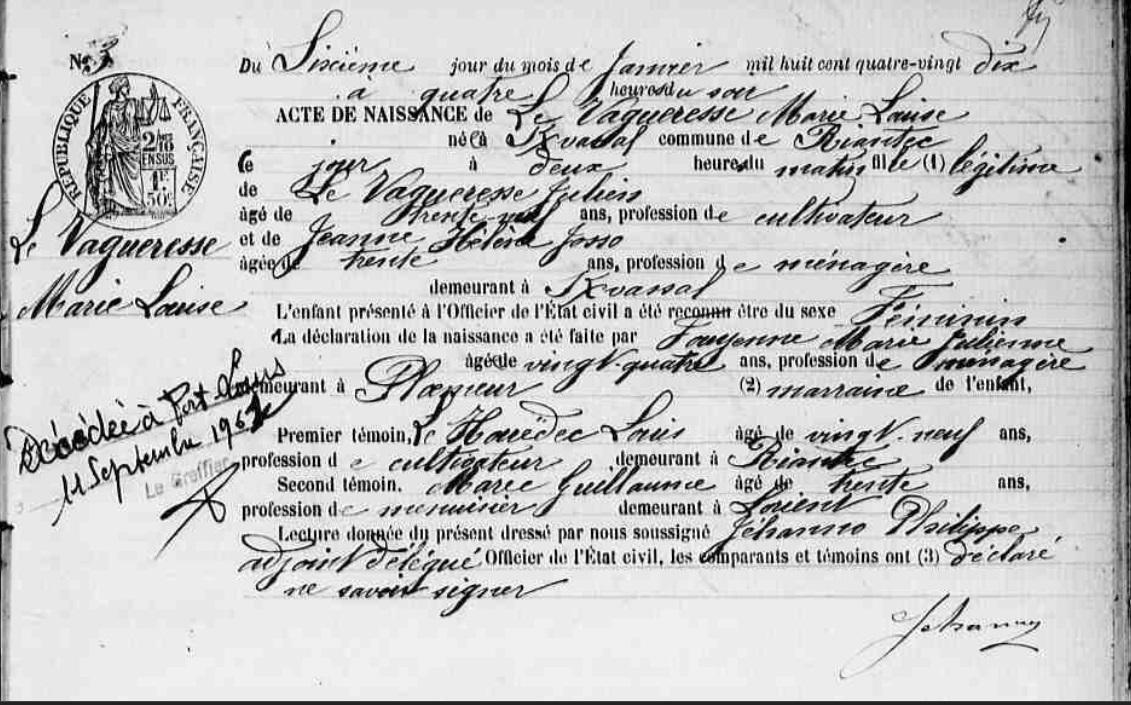 N° 3
RÉPUBLIQUE FRANÇAISE
2/10 EN SUS
1F 50c
Du Sixième jour du mois de Janvier mil huit cent quatre-vingt dix
à quatre heures du soir
ACTE DE NAISSANCE de Le Vagueresse Marie Louise
née à Kvassal commune de Riantec
ce jour à deux heures du matin fille (1) légitime
de Le Vagueresse Julien
âgé de trente-neuf ans, profession de cultivateur
et de Jeanne Hélène Josso
âgée de trente ans, profession de ménagère
demeurant à Kvassal
Le Vagueresse
Marie Louise
L'enfant présenté à l'Officier de l'État civil a été reconnu être du sexe Féminin
La déclaration de la naissance a été faite par Marie Julienne
âgée de vingt-quatre ans, profession de ménagère
demeurant à Plœmeur (2) marraine de l'enfant,
Premier témoin, Le Louis âgé de vingt-neuf ans,
profession de cultivateur demeurant à Riantec
Second témoin. Marec Guillaume âgé de trente ans,
profession de menuisier demeurant à Lorient
Lecture donnée du présent dressé par nous soussigné Jéhanno Philippe
adjoint délégué Officier de l'État civil, les comparants et témoins ont (3) déclaré
ne savoir signer
Jehanno
Décédée à Port-Louis
11 Septembre
Le Greffier